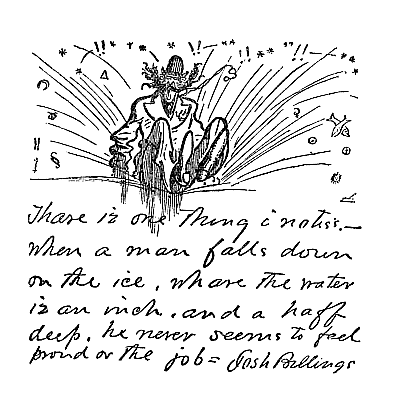 Thare iz one thing i notiss.—
when a man falls down
on the ice, whare the water
iz an inch, and a haff
deep, he never seems to feel
proud ov the job= Josh Billings